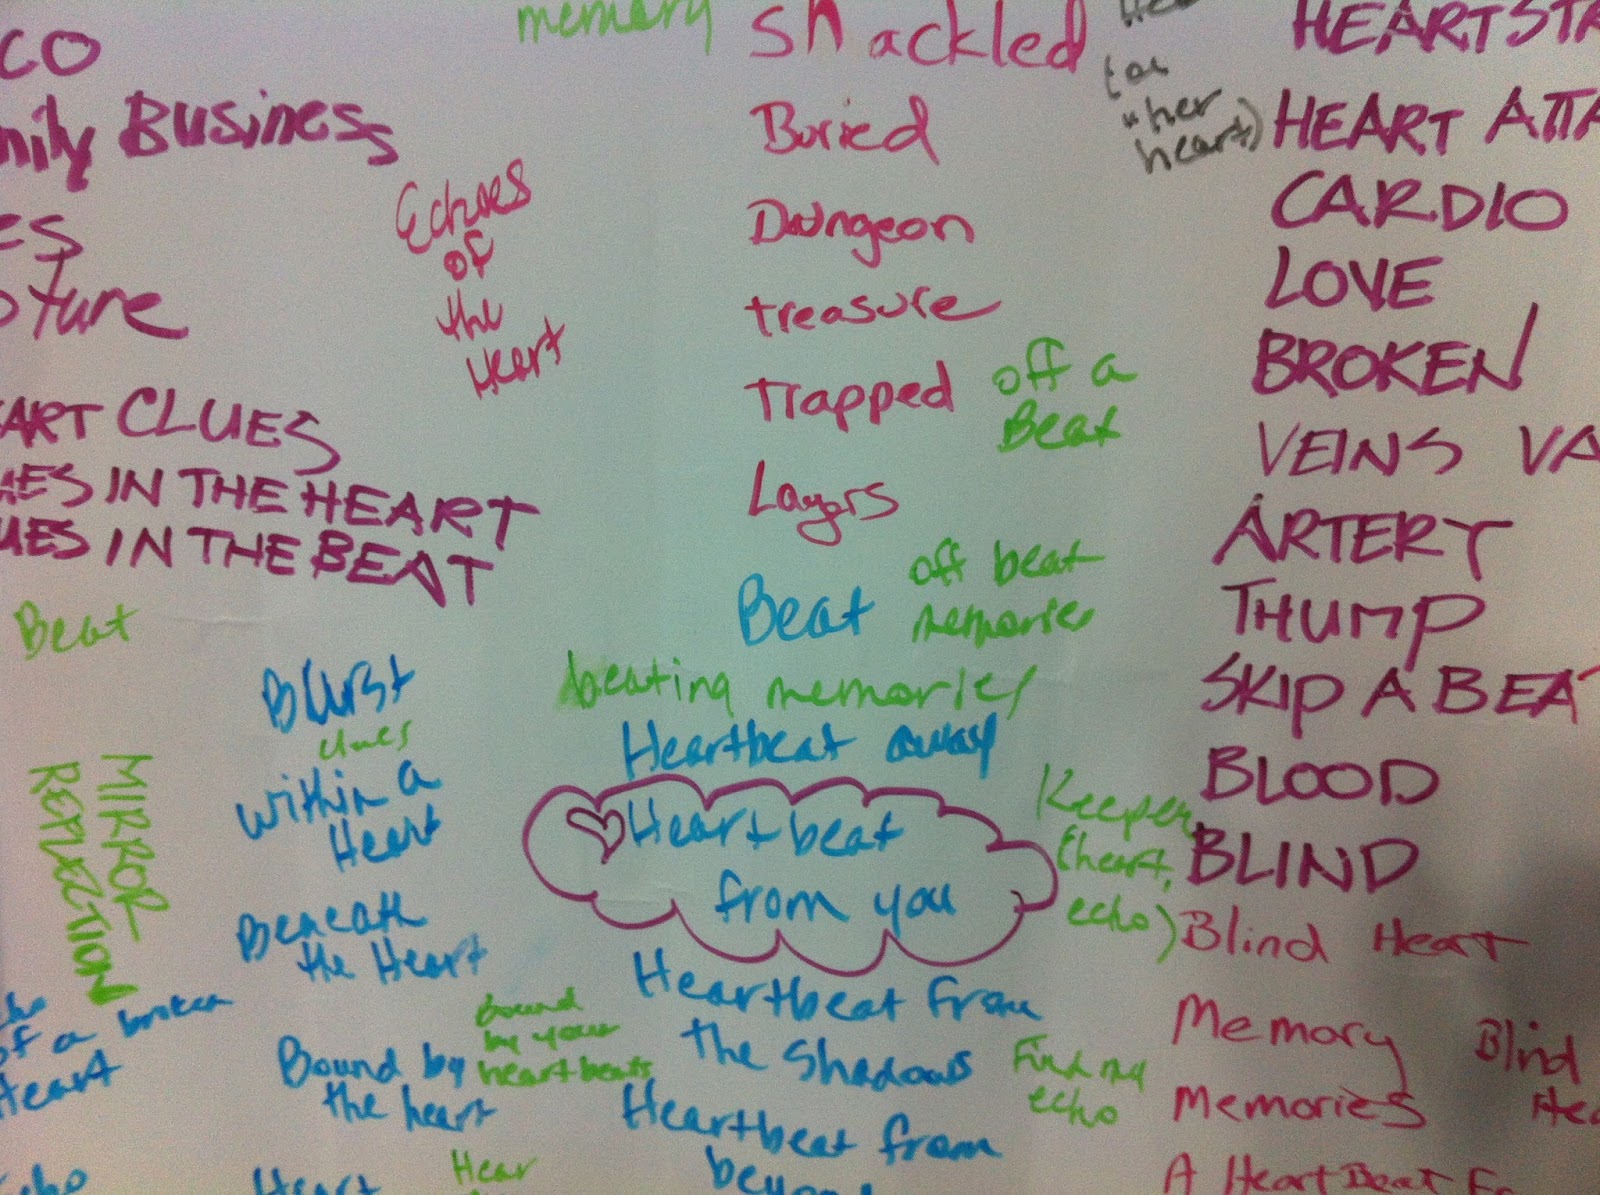 CO
mily Business
ES
ture
ART CLUES
UES IN THE HEART
UES IN THE BEAT
Beat
MIRROR
REFLECTION
of a broken
Heart
Echoes
of
the
Heart
Burst
clues
within a
Heart
Beneath
the Heart
Bound by
the heart
Heart
bound
by your
heartbeats
Hear
memory
Shackled
Buried
Dungeon
treasure
Trapped
Layers
off a
Beat
Beat
off beat
memories
beating memories
Heartbeat away
Heartbeat
from you
Heartbeat from
the shadows
Heartbeat from
Keeper
(heart,
echo)
Find my
echo
"her
heart)
HEART STA
HEART ATTA
CARDIO
LOVE
BROKEN
VEINS VA
ARTERY
THUMP
SKIP A BEAT
BLOOD
BLIND
Blind Heart
Memory
Memories
Blind
Hea
A HeartBeat F